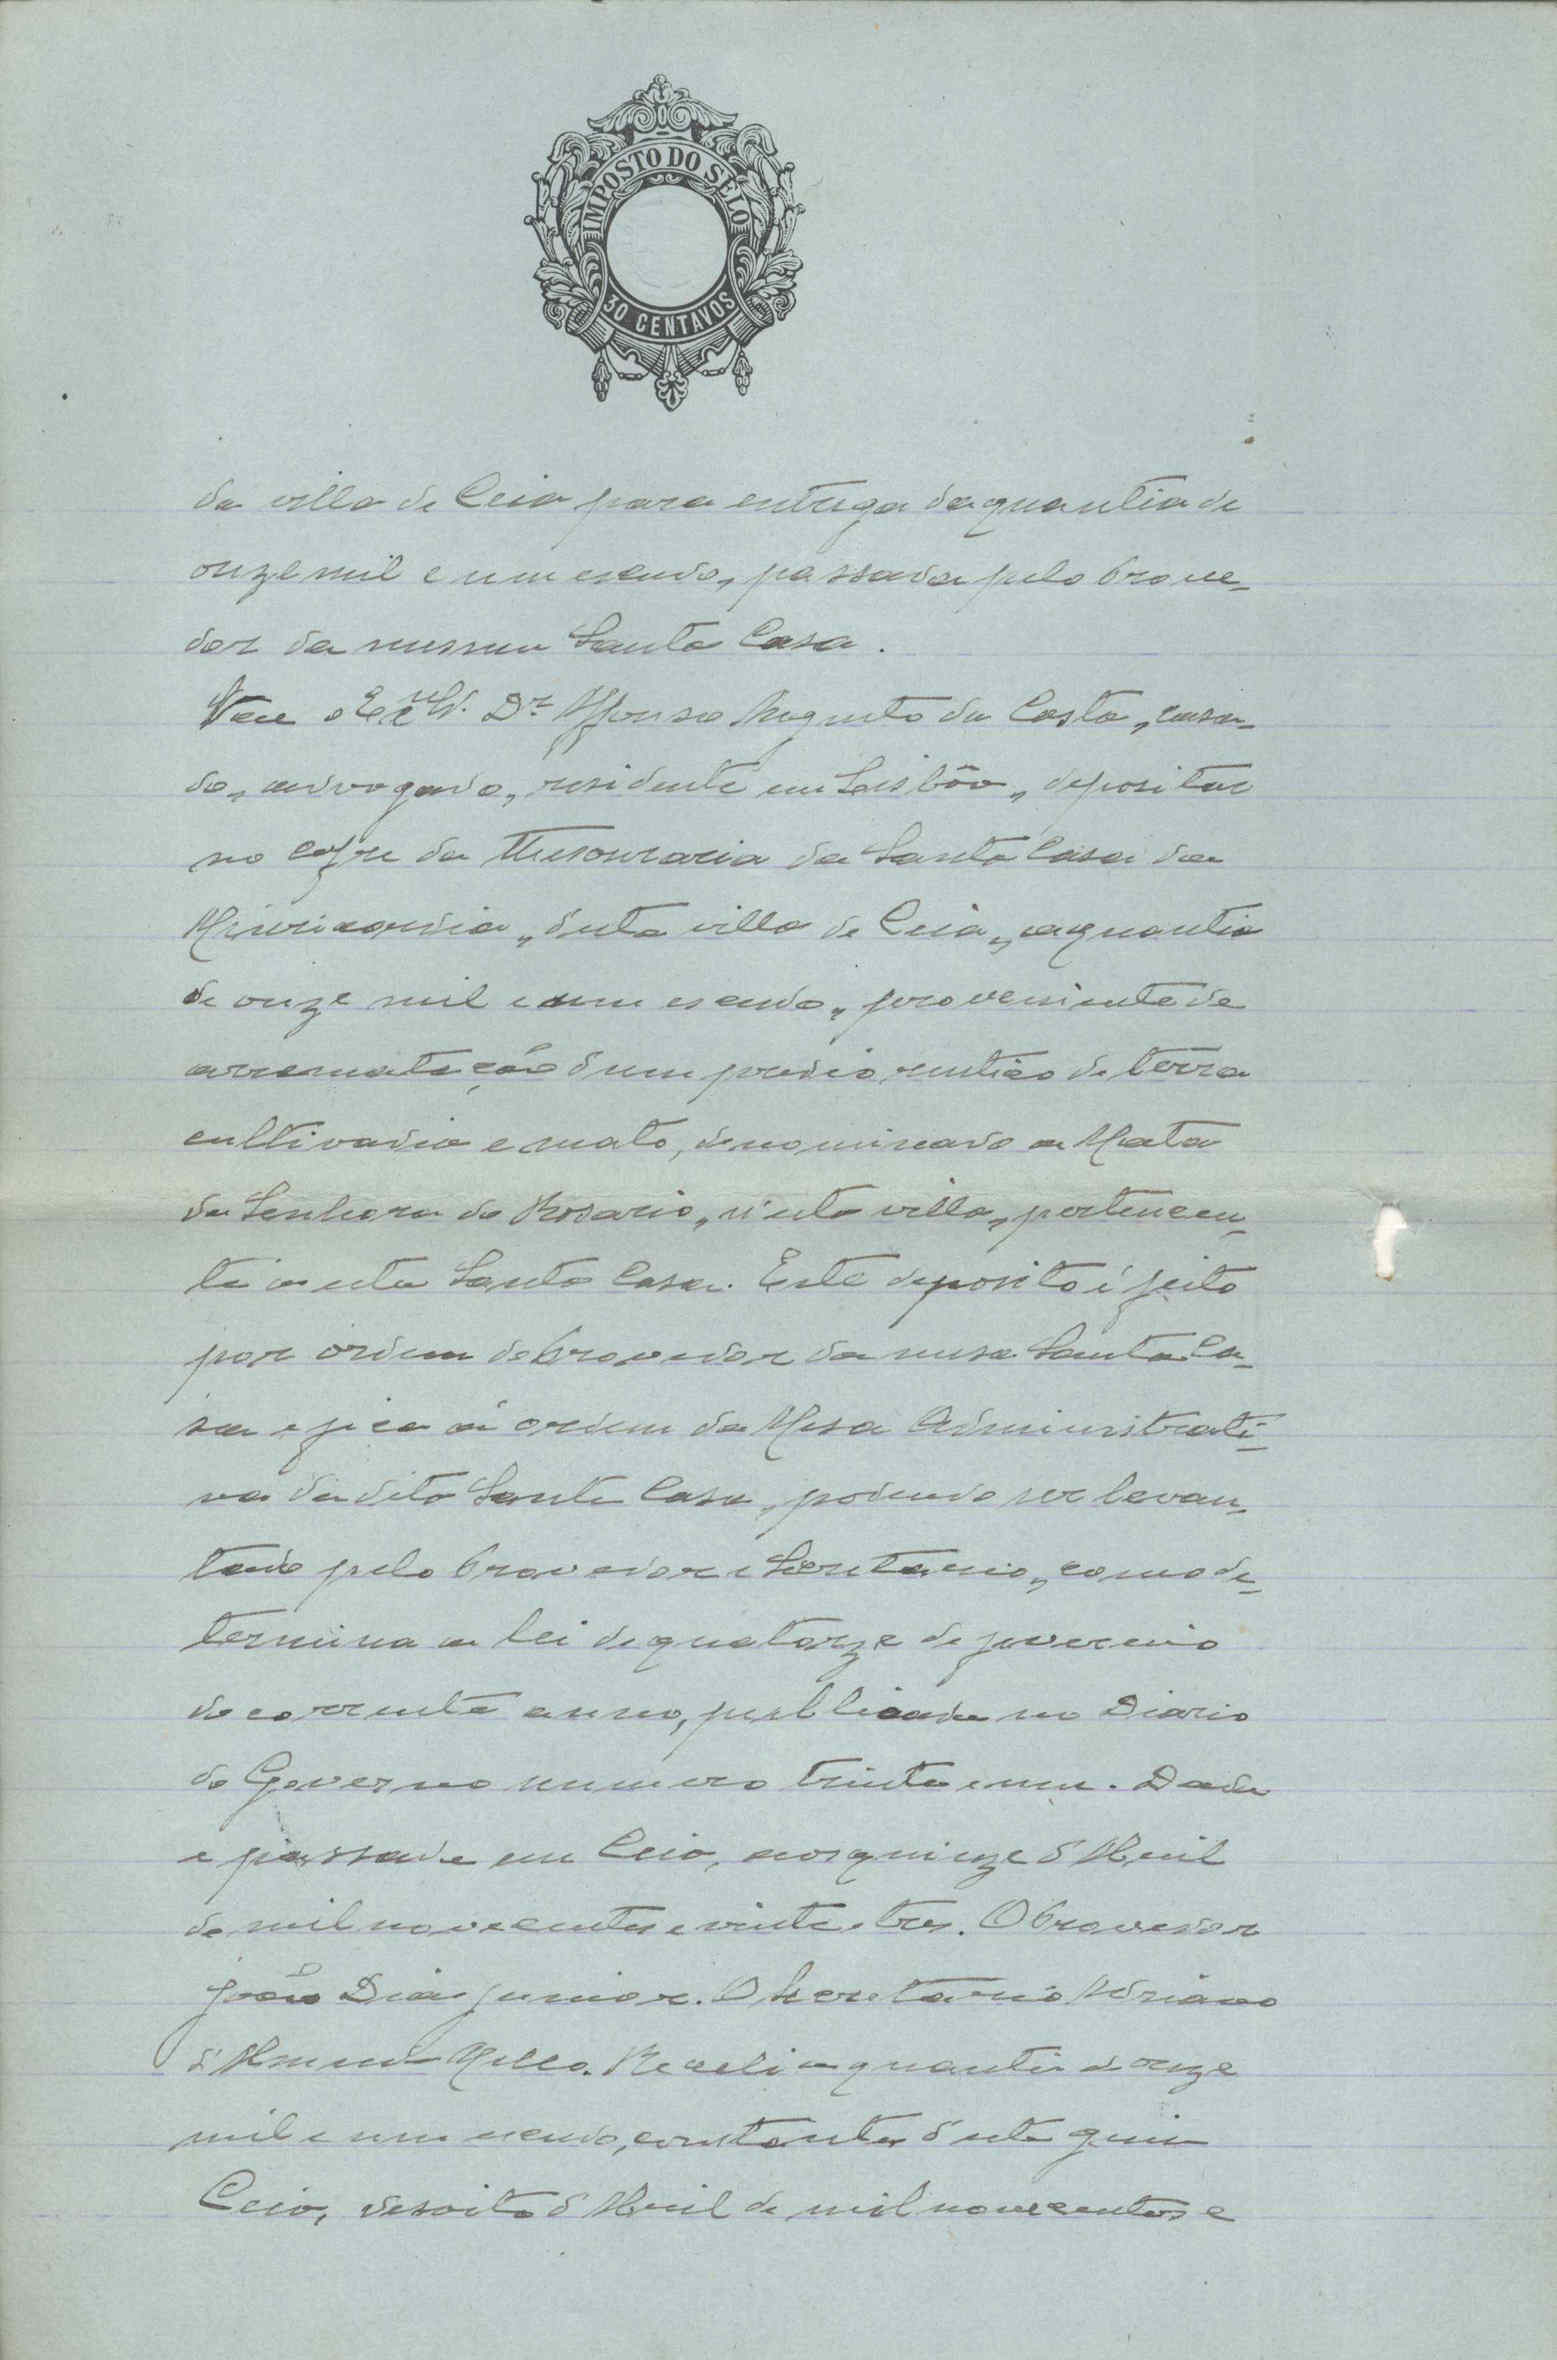 IMPOSTO DO SELO
30 CENTAVOS
da villa de Ceia para entrega da quantia de
onze mil e um escudo, passada pelo Prove-
dor da mesma Santa Casa.
Vae o Exmo Sr. Dr Affonso Augusto da Costa, casa-
do, advogado, residente em Lisbôa, depositar
no cofre da Thesouraria da Santa Casa da
Misericordia, d'esta villa de Ceia, a quantia
de onze mil e um escudo, proveniente de
arrematação d'um predio rustico de terra
cultivadia e mato, denominado a Mata
da Senhora do Rosario, n'esta villa, pertencen-
te a esta Santa Casa. Este deposito é feito
por ordem do Provedor da mesa Santa Ca-
sa e fica á ordem da Mesa Administrati-
va da dita Santa Casa, podendo ser levan-
tado pelo Provedor e Secretario, como de-
termina a lei de quatorze de fevereiro
do corrente anno, publicada no Diario
do Governo numero trinta e um. Dada
e passada em Ceia, aos quinze d'Abril
de mil novecentos e vinte e tres. O Provedor
João Dias Junior. O Secretario Adriano
d'Mello. Recebi a quantia de onze
mil e um escudo, constante d'esta guia
Ceia, desoito d'Abril de mil novecentos e